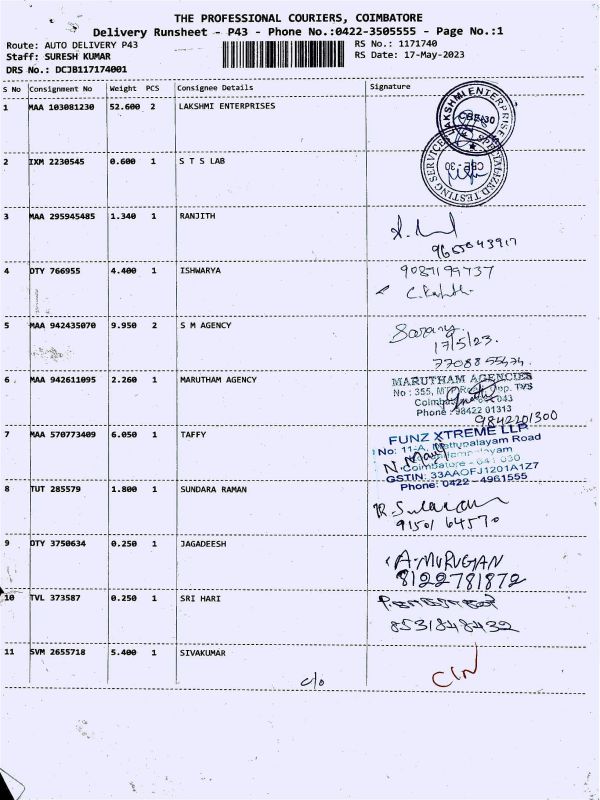 THE PROFESSIONAL COURIERS, COIMBATORE
Delivery Runsheet - P43 - Phone No.:0422-3505555 - Page No.:1
Route: AUTO DELIVERY P43 RS No.: 1171740
Staff: SURESH KUMAR RS Date: 17-May-2023
DRS No.: DCJB117174001
S No Consignment No Weight PCS Consignee Details Signature
1 MAA 103081230 52.600 2 LAKSHMI ENTERPRISES
LAKSHMI ENTERPRISE
CBE-30
2 IXM 2230545 0.600 1 S T S LAB
SPECIALIZED TESTING SERVICE
CBE - 30
3 MAA 295945485 1.340 1 RANJITH
4 DTY 766955 4.400 1 ISHWARYA
5 MAA 942435070 9.950 2 S M AGENCY
17/5/23.
6 MAA 942611095 2.260 1 MARUTHAM AGENCY
MARUTHAM AGENCIES
No : 355, MTP Opp. TVS
Phone : 98422 01313
9842201300
7 MAA 570773409 6.050 1 TAFFY
FUNZ XTREME LLP
No: 11-A, Mettupalayam Road
Coimbatore - 641 030
GSTIN: 33AAOFJ1201A1Z7
Phone: 0422 - 4961555
8 TUT 285579 1.800 1 SUNDARA RAMAN
91501 64570
9 DTY 3750634 0.250 1 JAGADEESH
A. MURUGAN
8122781872
10 TVL 373587 0.250 1 SRI HARI
8531848432
11 SVM 2655718 5.400 1 SIVAKUMAR
c/o